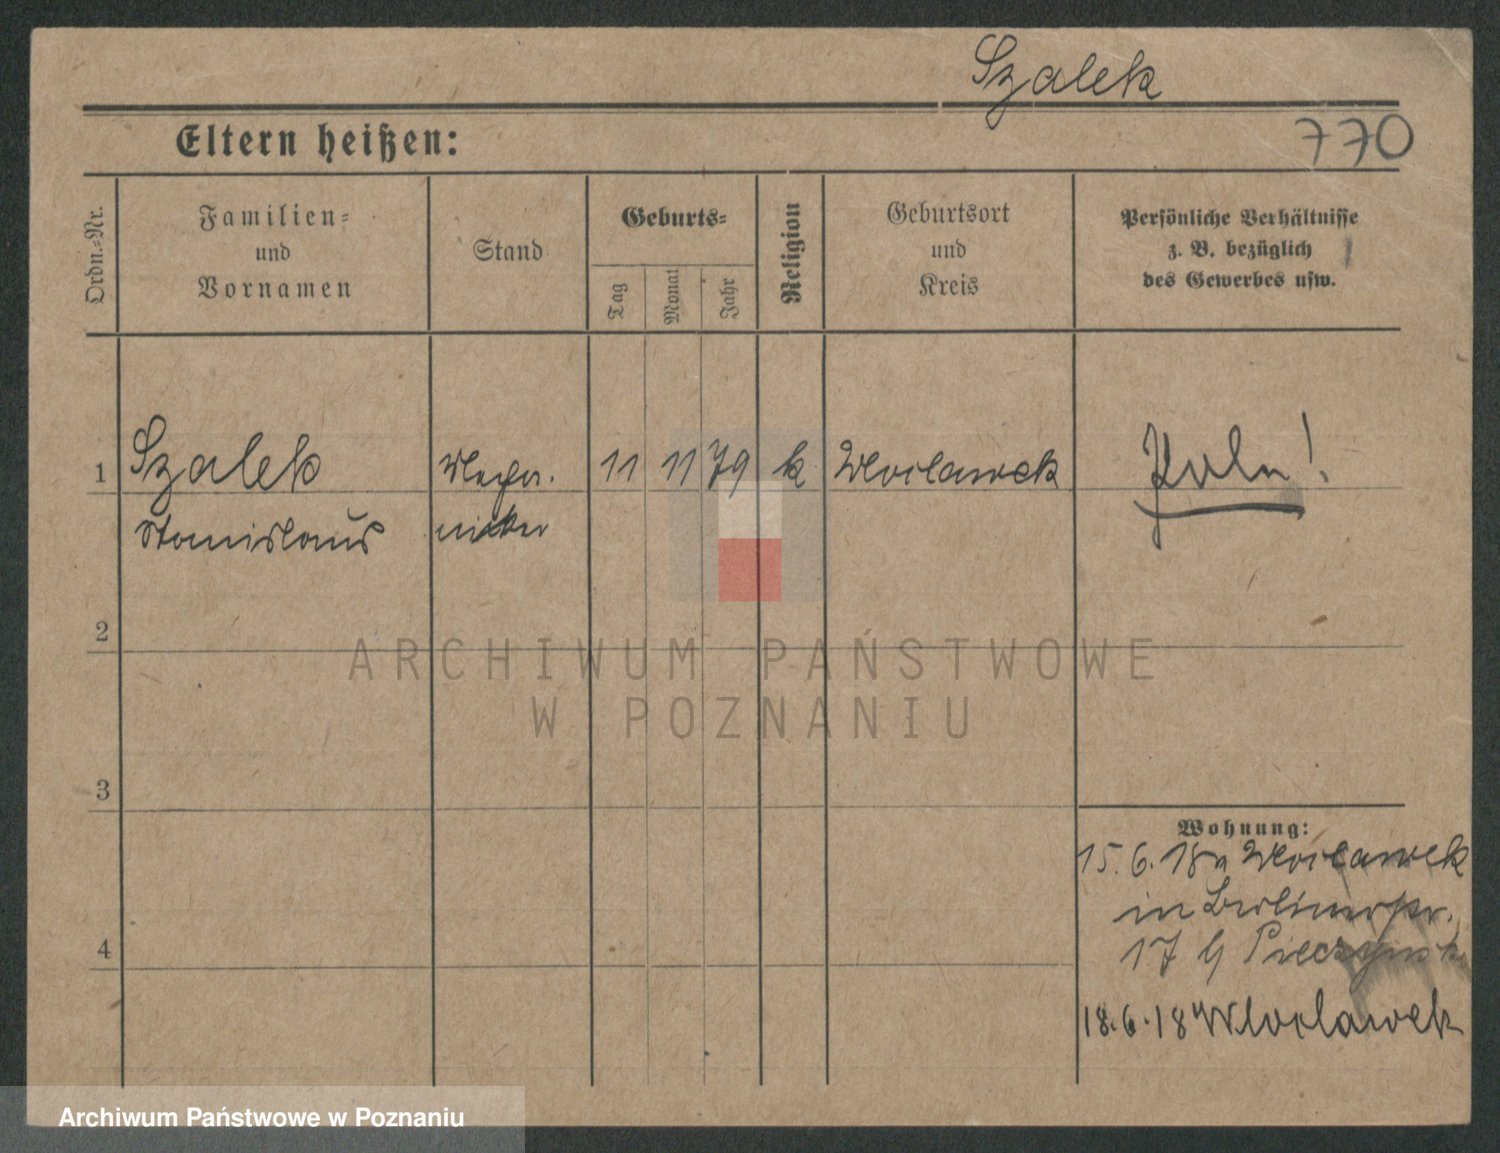 Szalek
770
Eltern heißen:
Ordn.-Nr.
Familien-
und
Vornamen
Stand
Geburts-
Tag
Monat
Jahr
Religion
Geburtsort
und
Kreis
Persönliche Verhältnisse
z. B. bezüglich
des Gewerbes usw.
1
Szalek
11
11
79
k
Wloclawek
Stanislaus
2
3
4
Wohnung:
15. 6. 18 Wloclawek
in Berlinerstr.
17
18. 6. 18 Wloclawek
ARCHIWUM PAŃSTWOWE
W POZNANIU
Archiwum Państwowe w Poznaniu